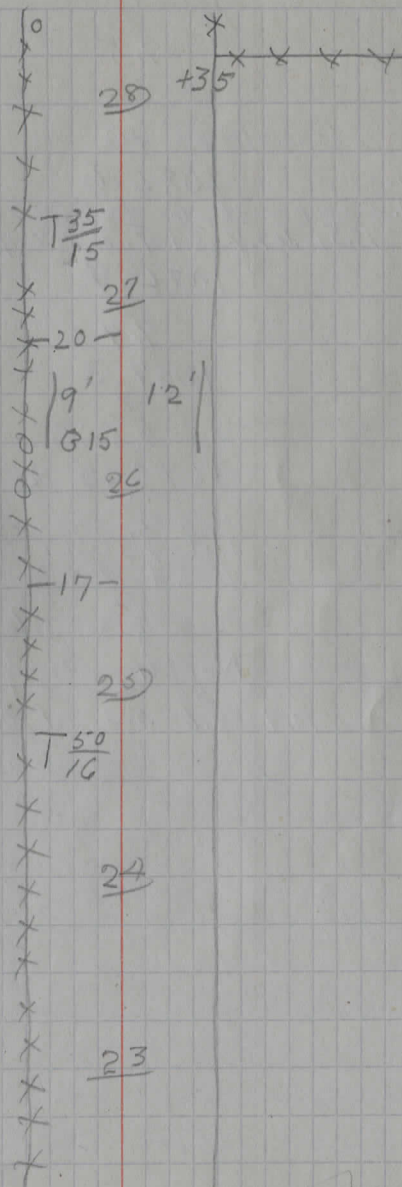 0
+35
28
T 35/15
27
20
9' 12'
@15
26
17
25
T 50/16
24
23